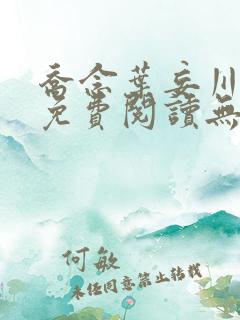 喬念葉妄川
免費閱讀無
何敏
未经同意禁止转载